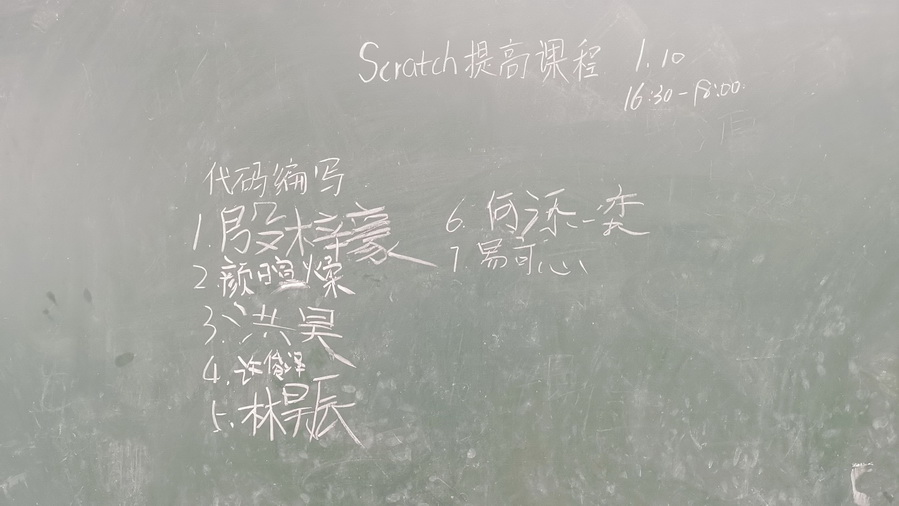 Scratch提高课程 1.10
16:30-18:00
代码编写
1.段梓豪
2.颜暄燦
3.洪昊
4.许俊泽
5.林昊辰
6.何添一奕
7易可心